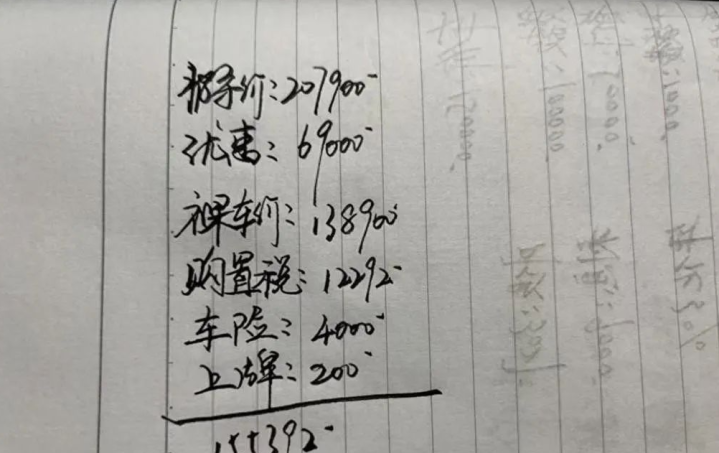 指导价：207900
优惠：69000
裸车价：138900
购置税：12292
车险：4000
上牌：200
155392